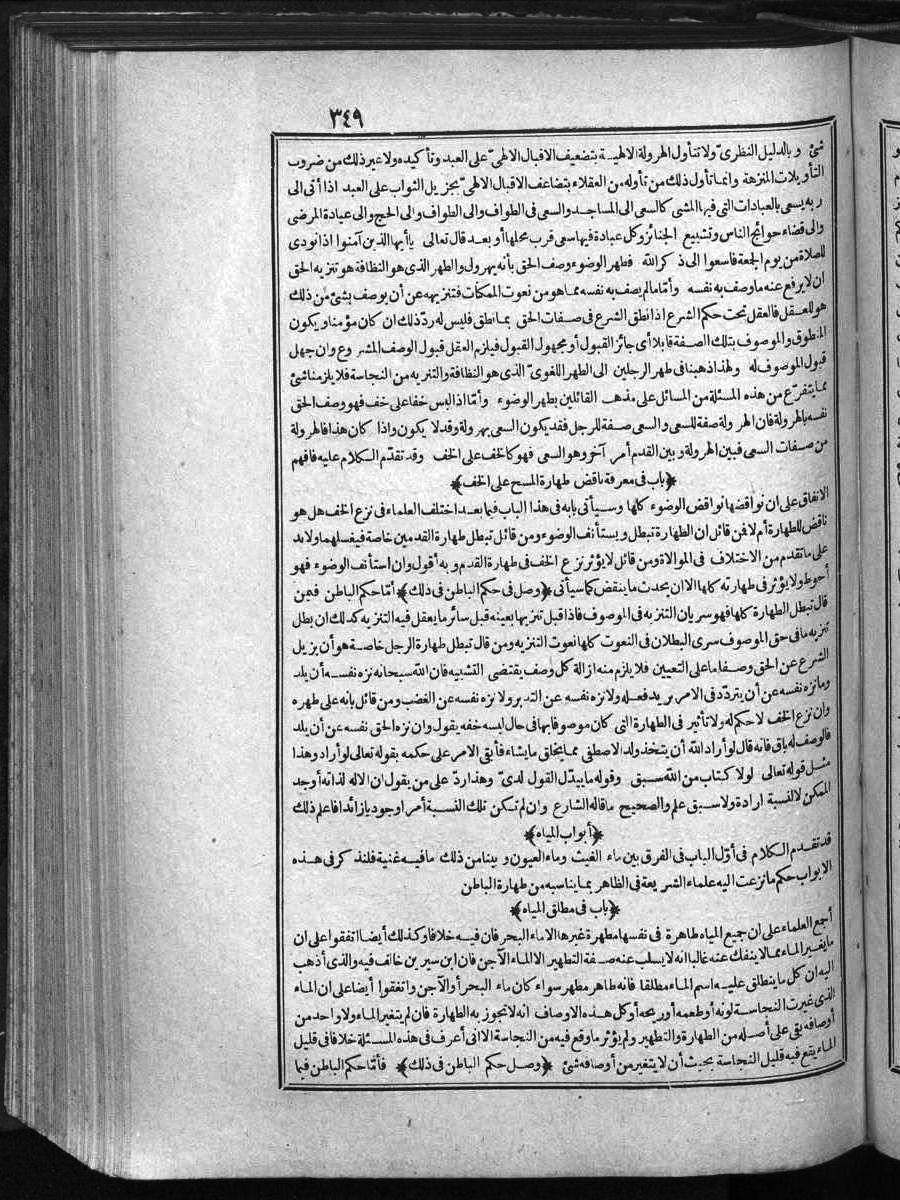 ٣٤٩
شئ وبالدليل النظرى ولا تتأول الهرولة الالهية بتضعيف الاقبال الالهى على العبد وتأكيده ولا غير ذلك من ضروب
التأويلات المنزهة وانما تأول ذلك من تأوله من العقلاء بتضاعف الاقبال الالهى بجزيل الثواب على العبد اذا أتى الى
ربه يسعى بالعبادات التى فيها المشى كالسعى الى المساجد والسعى فى الطواف والى الطواف والى الحج والى عيادة المرضى
والى قضاء حوائج الناس وتشييع الجنائز وكل عبادة فيها سعى قرب محلها أو بعد قال تعالى يا أيها الذين آمنوا اذا نودى
للصلاة من يوم الجمعة فاسعوا الى ذكر الله فطهر الوضوء وصف الحق بأنه يهرول والطهر الذى هو النظافة هو تنزيه الحق
ان لا يرفع عنه ما وصف به نفسه وأما مالم يصف به نفسه مما هو من نعوت الممكنات فتنزيهه عن أن يوصف بشئ من ذلك
هو للعقل فالعقل تحت حكم الشرع اذا نطق الشرع فى صفات الحق بما نطق فليس له ردّ ذلك ان كان مؤمنا ويكون
المنطوق والموصوف بتلك الصفة قابلا أى جائز القبول أو مجهول القبول فيلزم العقل قبول الوصف المشروع وان جهل
قبول الموصوف له ولهذا ذهبنا فى طهر الرجلين الى الطهر اللغوى الذى هو النظافة والتنزيه من النجاسة فلا يلزمنا شئ
مما يتفرّع من هذه المسئلة من المسائل على مذهب القائلين بطهر الوضوء وأما اذا لبس خفا على خف فهو وصف الحق
نفسه بالهرولة فان الهرولة صفة للسعى والسعى صفة للرجل فقد يكون السعى بهرولة وقد لا يكون واذا كان هذا فالهرولة
من صفات السعى فبين الهرولة وبين القدم أمر آخر وهو السعى فهو كالخف على الخف وقد تقدّم الكلام عليه فافهم
﴿باب فى معرفة ناقض طهارة المسح على الخف﴾
الاتفاق على ان نواقضها نواقض الوضوء كلها وسيأتى بابه فى هذا الباب فيما بعد اختلف العلماء فى نزع الخف هل هو
ناقض للطهارة أم لا فمن قائل ان الطهارة تبطل ويستأنف الوضوء ومن قائل تبطل طهارة القدمين خاصة فيغسلهما ولا بد
على ما تقدم من الاختلاف فى الموالاة ومن قائل لا يؤثر نزع الخف فى طهارة القدم وبه أقول وان استأنف الوضوء فهو
أحوط ولا يؤثر فى طهارته كلها الا ان يحدث ما ينقض كما سيأتى ﴿وصل فى حكم الباطن فى ذلك﴾ أما حكم الباطن فمن
قال تبطل الطهارة كلها فهو سريان التنزيه فى الموصوف فاذا قبل تنزيها بعينه قبل سائر ما يعقل فيه التنزيه كذلك ان بطل
تنزيه ما فى حق الموصوف سرى البطلان فى النعوت كلها نعوت التنزيه ومن قال تبطل طهارة الرجل خاصة هو أن يزيل
الشرع عن الحق وصفا ما على التعيين فلا يلزم منه ازالة كل وصف يقتضى التشبيه فان الله سبحانه نزه نفسه أن يلد
وما نزه نفسه عن أن يتردّد فى الامر يريد فعله ولا نزه نفسه عن التدبر ولا نزه نفسه عن الغضب ومن قائل بانه على طهره
وان نزع الخف لا حكم له ولا تأثير فى الطهارة التى كان موصوفا بها فى حال لبسه خفه يقول وان نزه الحق نفسه عن أن يلد
فالوصف له باق فانه قال لو أراد الله أن يتخذ ولدا لاصطفى مما يخلق ما يشاء فأبقى الامر على حكمه بقوله تعالى لو أراد وهذا
مثل قوله تعالى لولا كتاب من الله سبق وقوله ما يبدّل القول لدىّ وهذا ردّ على من يقول ان الاله لذاته أوجد
الممكن لا لنسبة ارادة ولا سبق علم والصحيح ما قاله الشارع وان لم تكن تلك النسبة أمرا وجوديا زائدا فاعلم ذلك
﴿أبواب المياه﴾
قد تقدم الكلام فى أوّل الباب فى الفرق بين ماء الغيث وماء العيون وبينا من ذلك ما فيه غنية فلنذكر فى هذه
الابواب حكم ما نزعت اليه علماء الشريعة فى الظاهر بما يناسبه من طهارة الباطن
﴿باب فى مطلق المياه﴾
أجمع العلماء على ان جميع المياه طاهرة فى نفسها مطهرة غيرها الا ماء البحر فان فيه خلافا وكذلك أيضا اتفقوا على ان
ما يغير الماء مما لا ينفك عنه غالبا انه لا يسلب عنه صفة التطهير الا الماء الآجن فان ابن سيرين خالف فيه والذى أذهب
اليه ان كل ما ينطلق عليه اسم الماء مطلقا فانه طاهر مطهر سواء كان ماء البحر أو الآجن واتفقوا أيضا على ان الماء
الذى غيرت النجاسة لونه أو طعمه أو ريحه أو كل هذه الاوصاف انه لا تجوز به الطهارة فان لم يتغير الماء ولا واحد من
أوصافه بقى على أصله من الطهارة والتطهير ولم يؤثر ما وقع فيه من النجاسة الا انى أعرف فى هذه المسئلة خلافا فى قليل
الماء يقع فيه قليل النجاسة بحيث أن لا يتغير من أوصافه شئ ﴿وصل حكم الباطن فى ذلك﴾ فأما حكم الباطن فيما